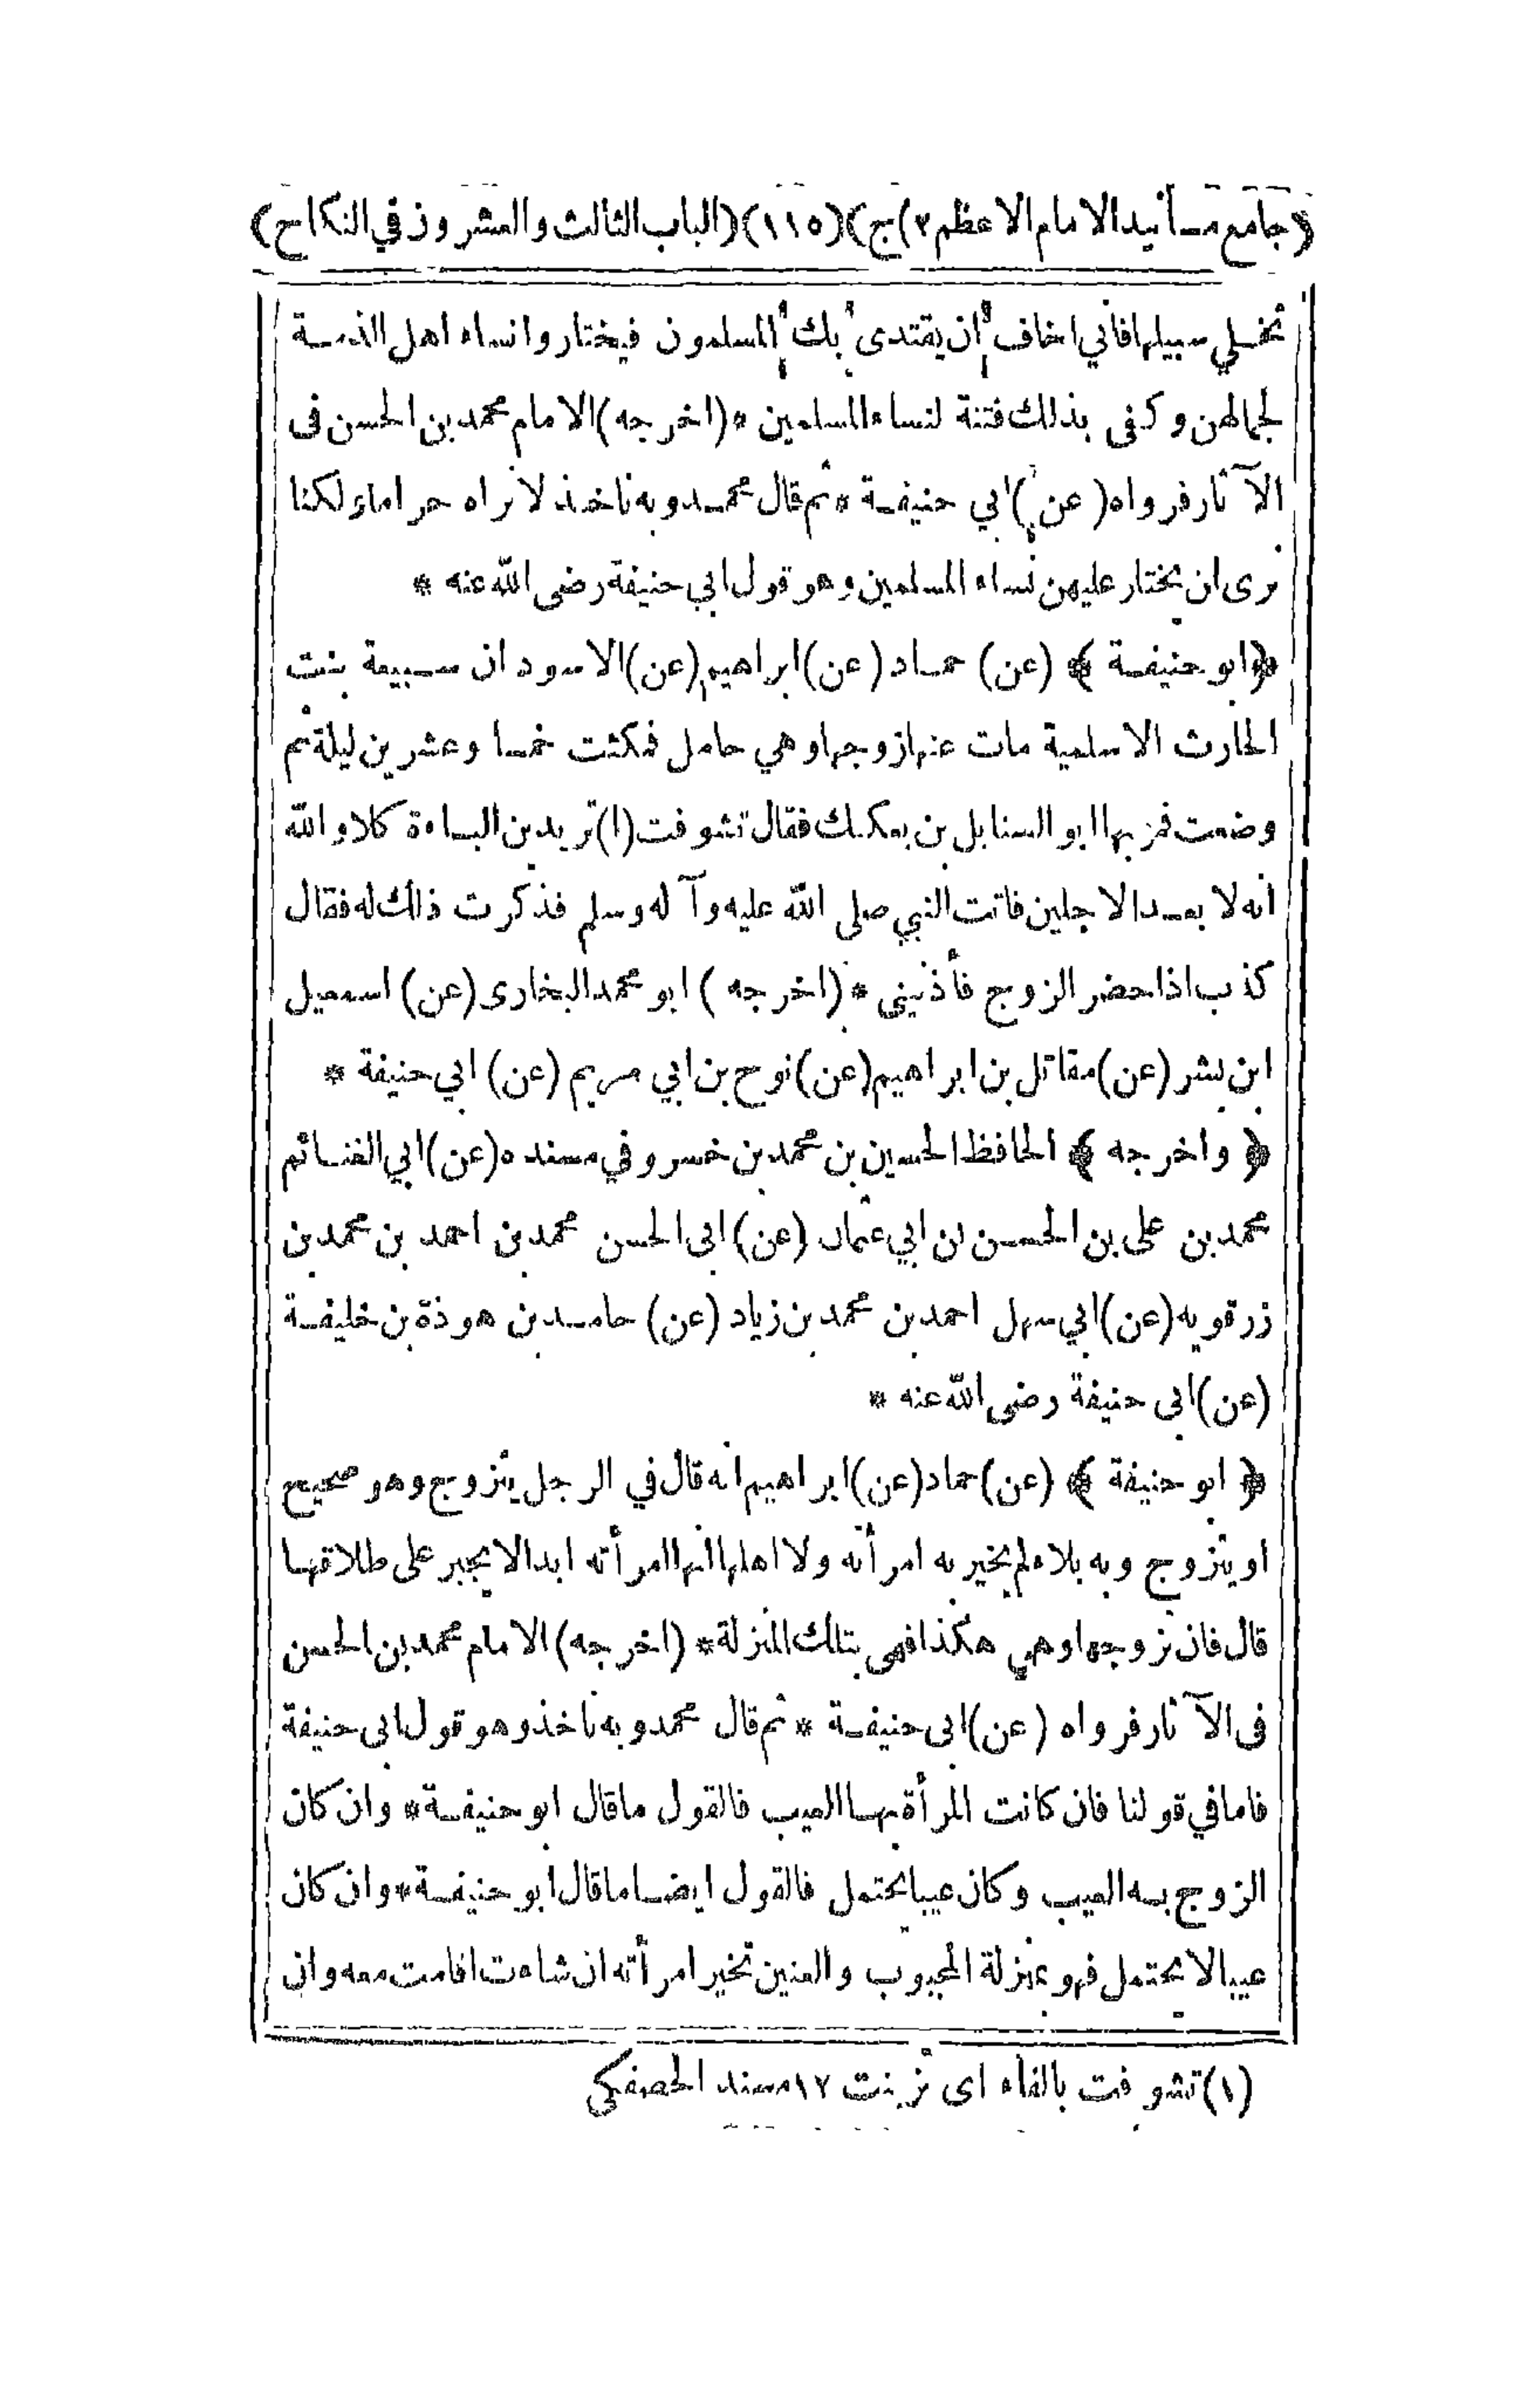 (جامع مسانيد الامام الاعظم ٣)ج)(١١٥)(الباب الثالث والعشرون في النكاح)
تخلي سبيلها فاني اخاف ان يقتدى بك المسلمون فيختاروا نساء اهل الذمة
لجمالهن وكفى بذلك فتنة لنساء المسلمين * (اخرجه) الامام محمد بن الحسن فى
الآثار فرواه (عن) ابي حنيفة * ثم قال محمد وبه ناخذ لا نراه حراما ولكنا
نرى ان يختار عليهن نساء المسلمين وهو قول ابي حنيفة رضى الله عنه *
﴿ابو حنيفة﴾ (عن) حماد (عن) ابراهيم (عن) الاسود ان سبيعة بنت
الحارث الاسلمية مات عنها زوجها وهي حامل فمكثت خمسا وعشرين ليلة ثم
وضعت فمر بها ابو السنابل بن بعكك فقال تشوفت (١) تريدين الباءة كلا والله
انه لا بعد الاجلين فاتت النبي صلى الله عليه وآله وسلم فذكرت ذلك له فقال
كذب اذا حضر الزوج فأذنيني * (اخرجه) ابو محمد البخارى (عن) اسمعيل
ابن بشر (عن) مقاتل بن ابراهيم (عن) نوح بن ابي مريم (عن) ابي حنيفة *
﴿واخرجه﴾ الحافظ الحسين بن محمد بن خسرو في مسنده (عن) ابي الغنائم
محمد بن على بن الحسن بن ابي عثمان (عن) ابى الحسن محمد بن احمد بن محمد بن
زرقويه (عن) ابي سهل احمد بن محمد بن زياد (عن) حامد بن هوذة بن خليفة
(عن) ابى حنيفة رضى الله عنه *
﴿ابو حنيفة﴾ (عن) حماد (عن) ابراهيم انه قال في الرجل يتزوج وهو صحيح
او يتزوج وبه بلاء لم يخير به امرأته ولا اهلها انها امرأته ابدا لا يجبر على طلاقها
قال فان تزوجها وهي هكذا فهى بتلك المنزلة * (اخرجه) الامام محمد بن الحسن
فى الآثار فرواه (عن) ابى حنيفة * ثم قال محمد وبه ناخذ وهو قول ابى حنيفة
فاما في قولنا فان كانت المرأة بها العيب فالقول ما قال ابو حنيفة * وان كان
الزوج به العيب وكان عيبا يحتمل فالقول ايضا ما قال ابو حنيفة * وان كان
عيبا لا يحتمل فهو بمنزلة المجبوب والعنين تخير امرأته ان شاءت اقامت معه وان
(١) تشوفت بالفاء اى تزينت ١٢ مسند الحصفكى